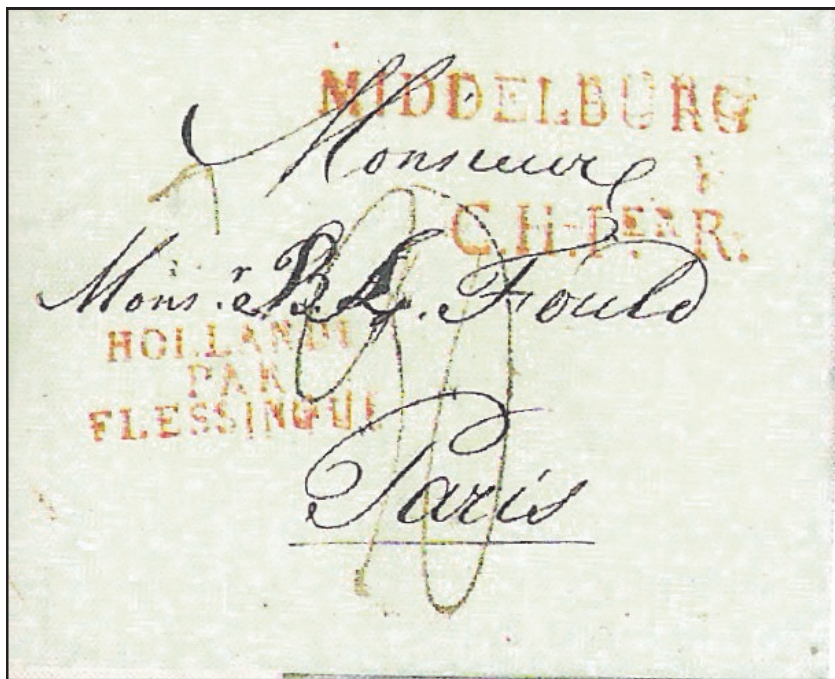 MIDDELBURG
Monsieur
C.H-1ER R.
Mons.r B. L. Fould
HOLLANDE
PAR
FLESSINGUE
Paris